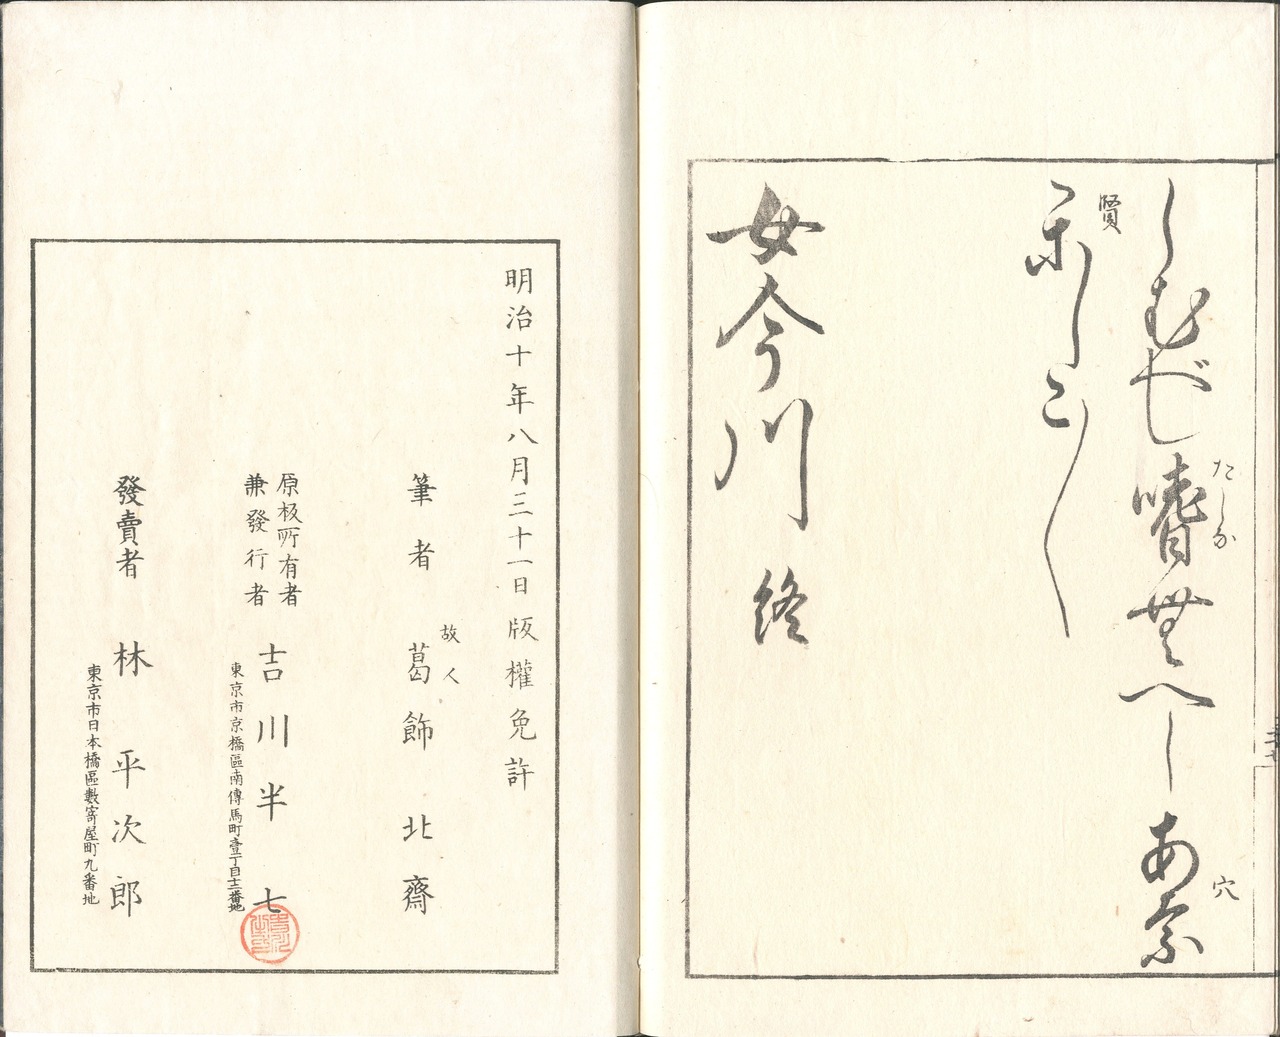 たしな 穴
しむべし嗜無へしあな
賢
かしこ
女今川 終
明治十年八月三十一日版權免許
故人
筆者 葛飾北齋
原板所有者
兼發行者
吉川半七
東京市京橋區南傳馬町壹丁目十二番地
發賣者 林平次郎
東京市日本橋區數寄屋町九番地